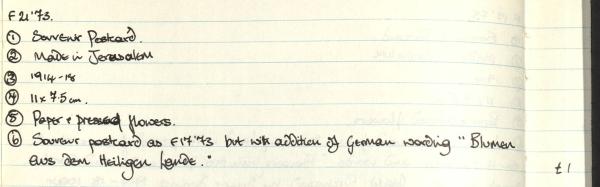 F21'73.
① Souvenir Postcard.
② Made in Jerusalem
③ 1914-18
④ 11 x 7.5 cm.
⑤ Paper + pressed flowers.
⑥ Souvenir postcard as F17'73 but with addition of German wording "Blumen
aus dem Heiligen Lande."
£1